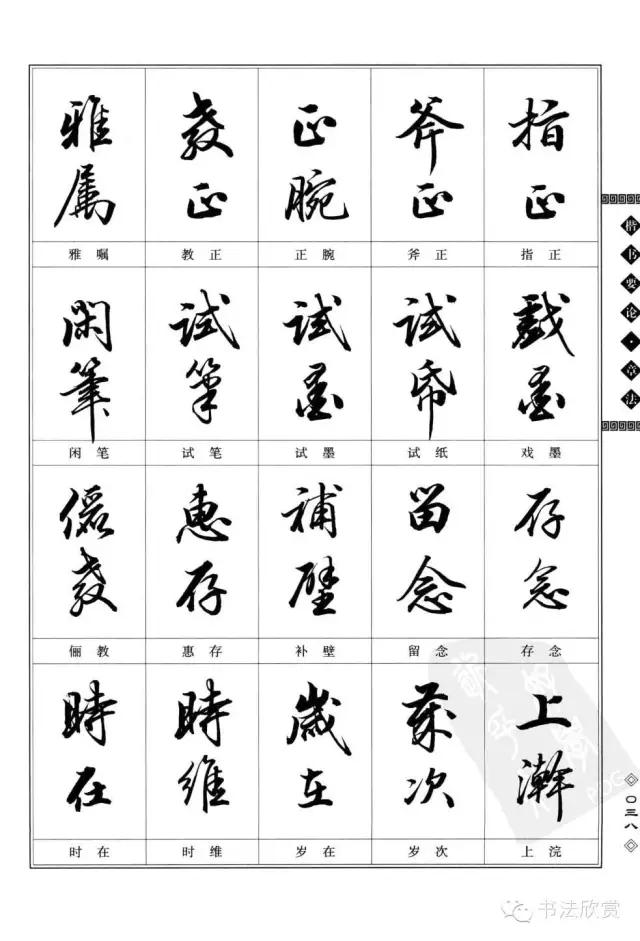 雅属 教正 正腕 斧正 指正
雅嘱 教正 正腕 斧正 指正
閑筆 試筆 試墨 試帋 戲墨
闲笔 试笔 试墨 试纸 戏墨
儷教 惠存 補壁 留念 存念
俪教 惠存 补壁 留念 存念
時在 時維 歲在 歲次 上澣
时在 时维 岁在 岁次 上浣
楷书要论·章法
〇三八
PDG
书法欣赏